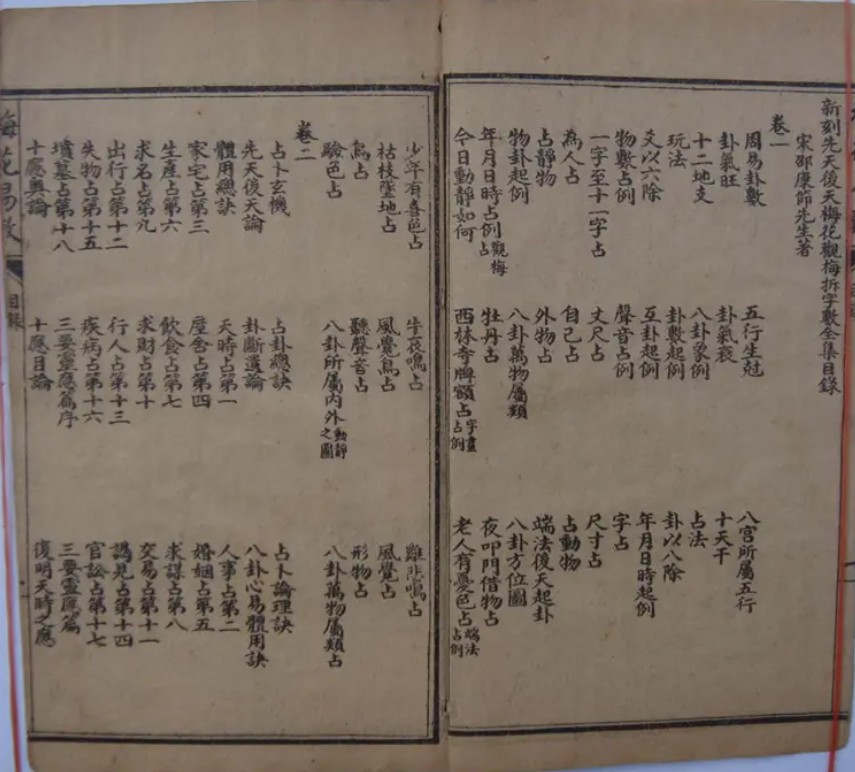 新刻先天後天梅花觀梅拆字數全集目錄
宋邵康節先生著
卷一
周易卦數 五行生尅 八宮所屬五行
卦氣旺 卦氣衰 十天干
十二地支 八卦象例 占法
玩法 卦數起例 卦以八除
爻以六除 互卦起例 年月日時起例
物數占例 聲音占例 字占
一字至十一字占 丈尺占 尺寸占
為人占 自己占 占動物
占靜物 外物占 端法後天起卦
物卦起例 八卦萬物屬類 八卦方位圖
年月日時占例觀梅占 牡丹占 夜叩門借物占
今日動靜如何 西林寺牌額占字畫占例 老人有憂色占端法占例
少年有喜色占 牛夜鳴占 雞悲鳴占
枯枝墜地占 風覺鳥占 風覺占
鳥占 聽聲音占 形物占
驗色占 八卦所屬內外動靜之圖 八卦萬物屬類占
卷二
占卜玄機 占卦總訣 占卜論理訣
先天後天論 卦斷遺論 八卦心易體用訣
體用總訣 天時占第一 人事占第二
家宅占第三 屋舍占第四 婚姻占第五
生產占第六 飲食占第七 求謀占第八
求名占第九 求財占第十 交易占第十一
出行占第十二 行人占第十三 謁見占第十四
失物占第十五 疾病占第十六 官訟占第十七
墳墓占第十八 三要靈應篇序 三要靈應篇
十應奧論 十應目論 復明天時之應
梅花易數
目錄